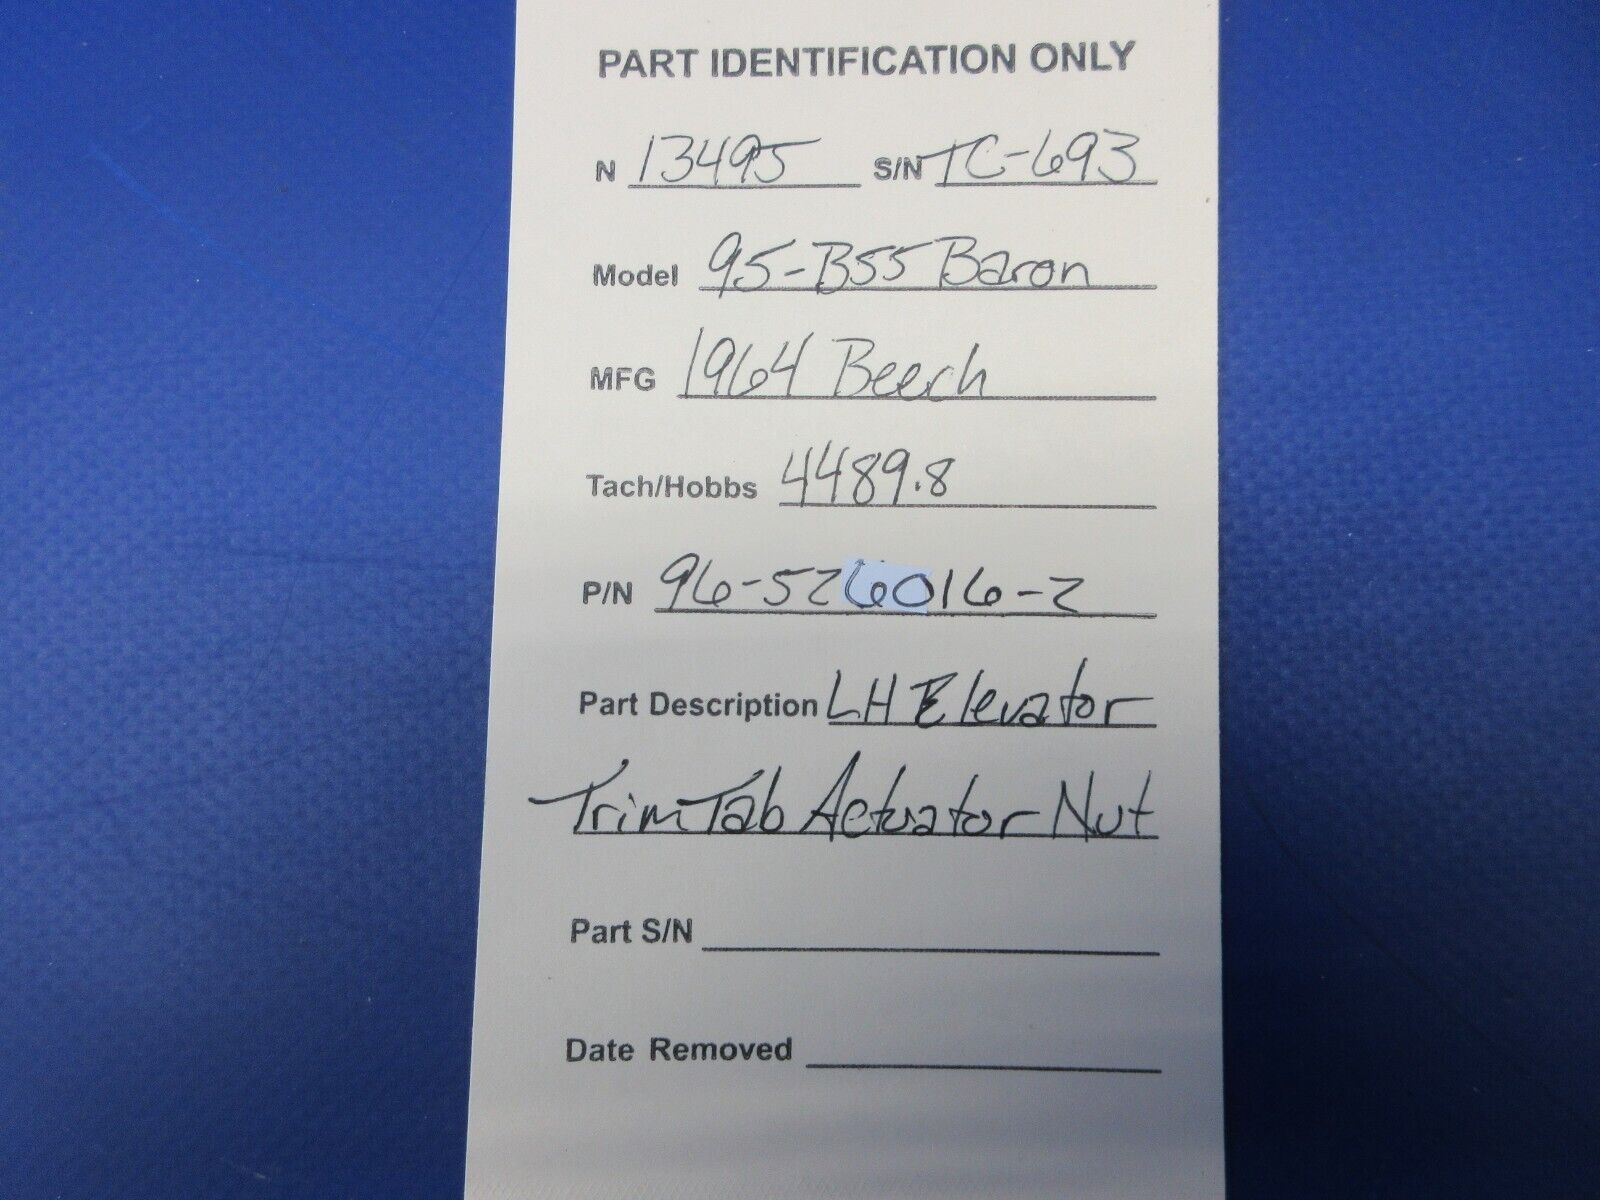 PART IDENTIFICATION ONLY
N 13495 S/N TC-693
Model 95-B55 Baron
MFG 1964 Beech
Tach/Hobbs 4489.8
P/N 96-526016-2
Part Description LH Elevator
Trim Tab Actuator Nut
Part S/N
Date Removed